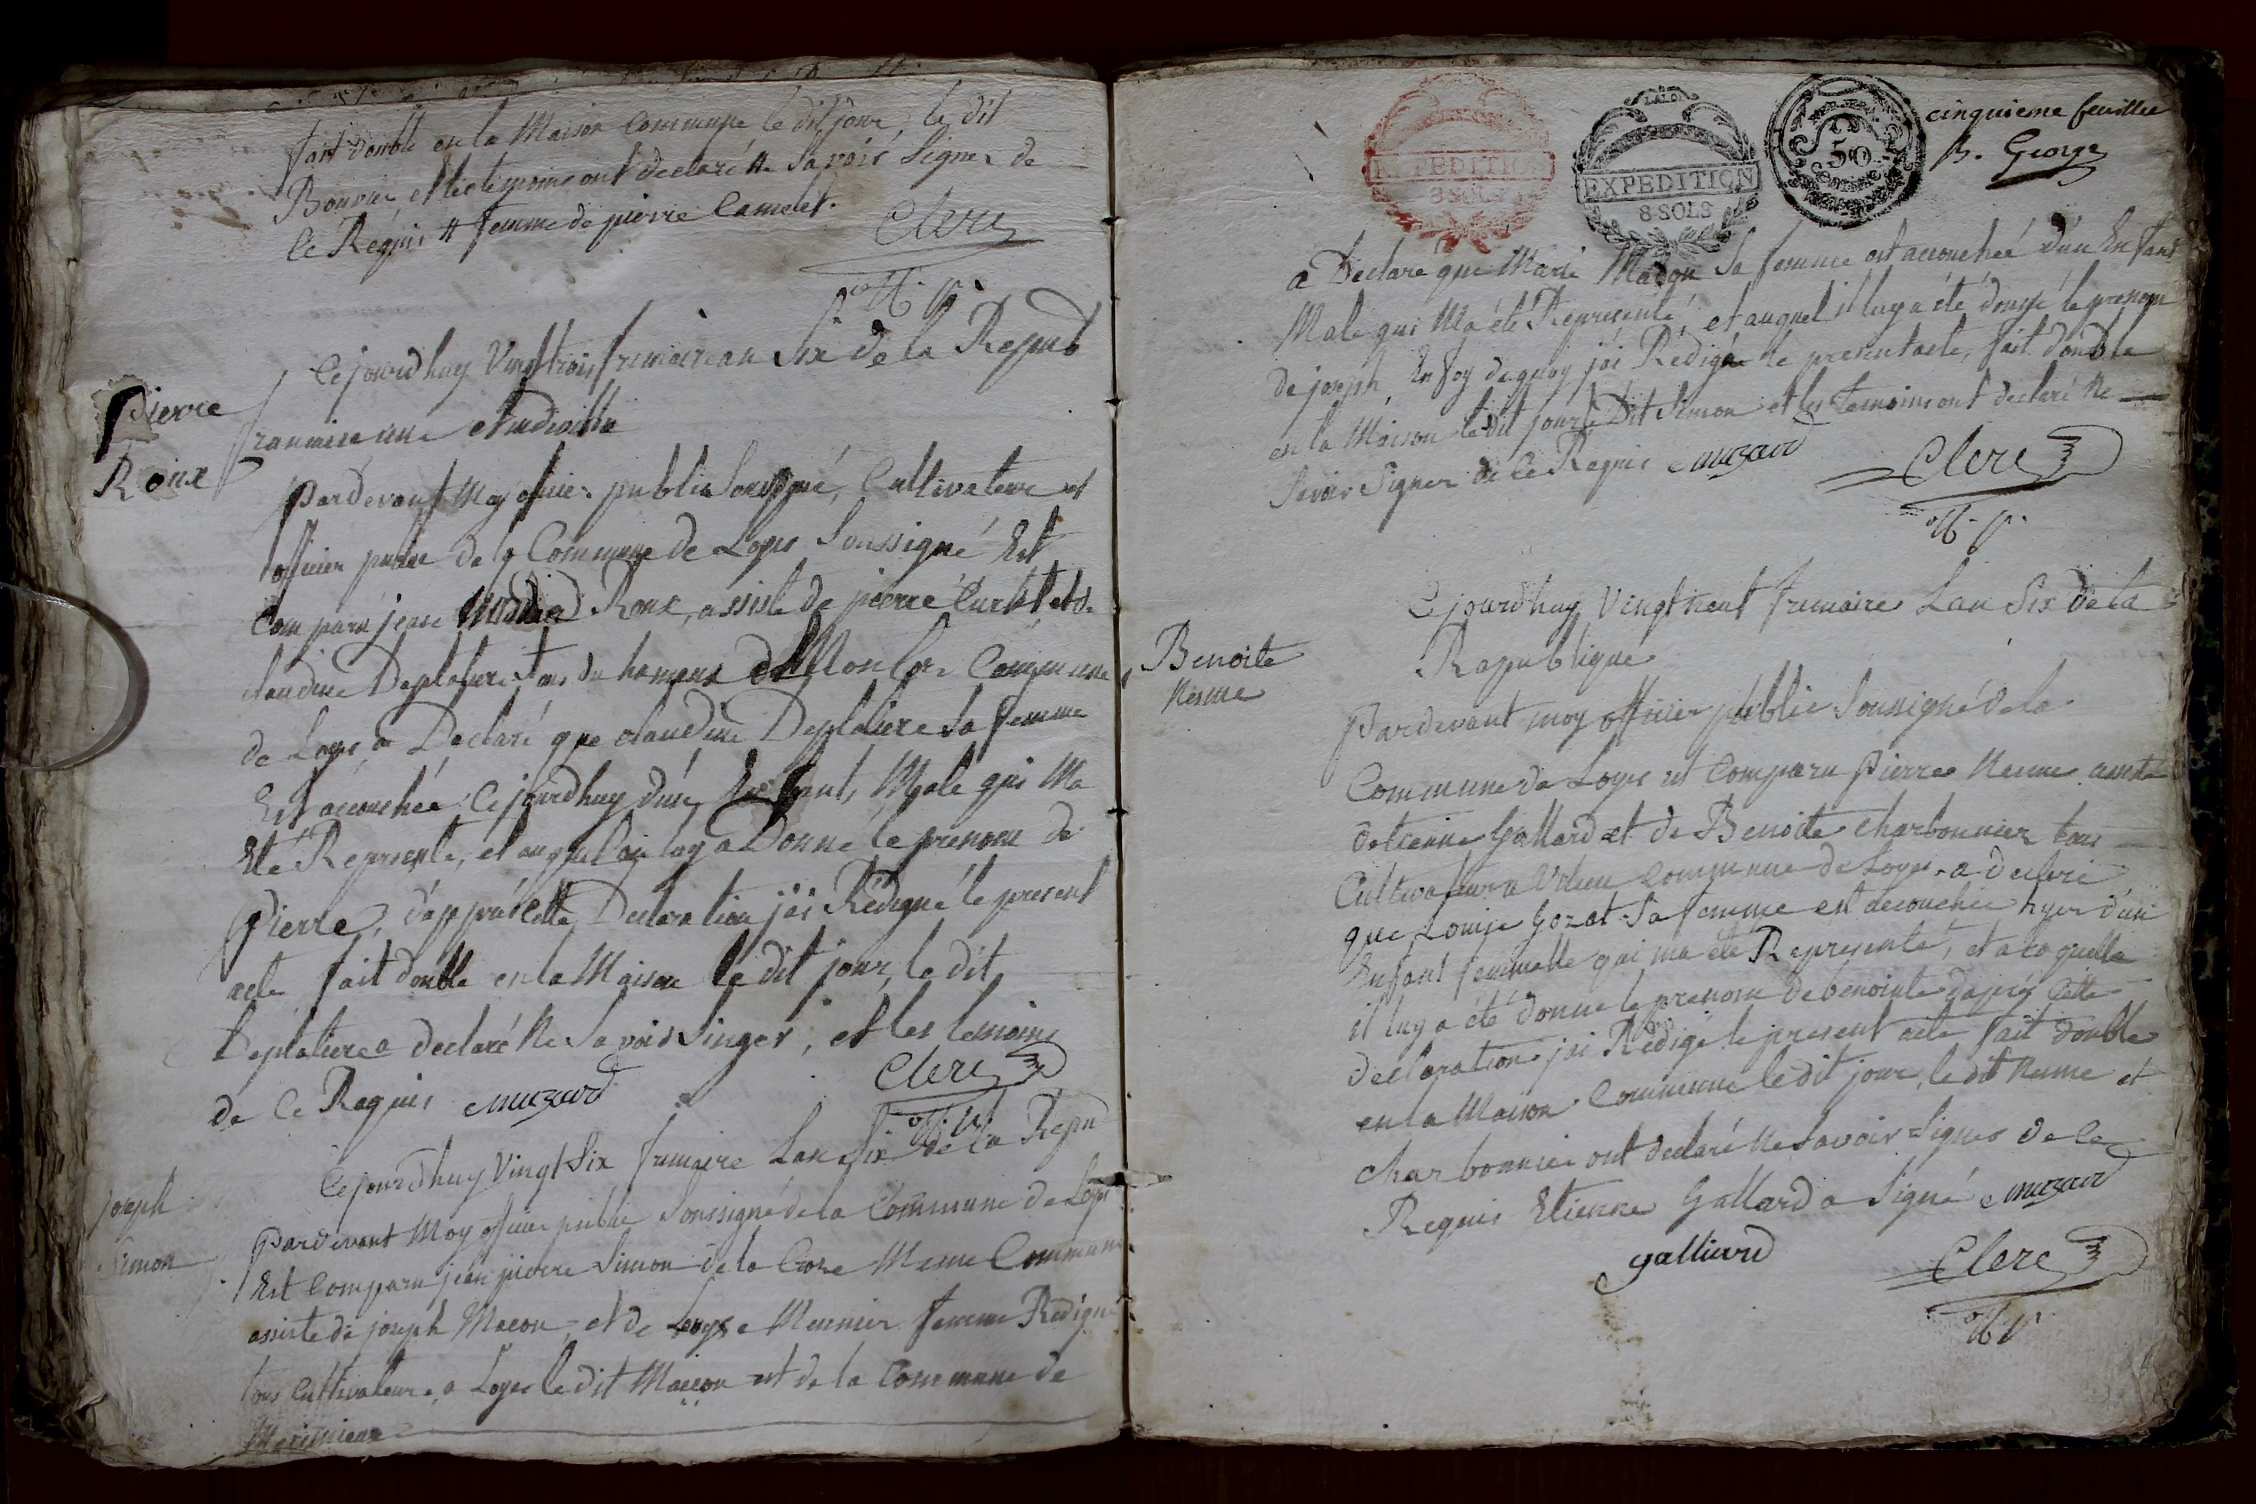 fait double en la Maison Commune le dit jour le dit
Bouvier et les temoins ont declaré ne Savoir Signer de
ce Requis # femme de pierre Camelet.
Clerc
Cejourdhuy Vingt trois frimaire an Six de la Repub
francaise une et indivisible
Pierre
Roux
Pardevant Moy officier public Soussigné, Cultivateur et
officier public de la Commune de Loyes Soussigné Est
Comparu jean Roux, assisté de pierre Curtet et de
claudine Deplatiere tous du hameau de Monfor Commune
de Loyes, a Declaré que claudine Deplatiere Sa femme
Est accouchée Cejourdhuy d'un Enfant Male qui Ma
Eté Représenté, et auquel on luy a Donné le prenom de
Pierre, d'apprés cette Declaration j'ai Rédigué le present
acte fait double en la Maison le dit jour, le dit
Deplatiere a declaré Ne Savoir Singer, et les temoins
de Ce Requis muzard
Clerc
Joseph
Simon
Cejourdhuy Vingt Six frimaire Lan Six de la Repu
Pardevant Moy officier public Soussigné de la Commune de Loyes
Est Comparu jean pierre Simon de la Croze Meme Commune
assisté de joseph Macon, et de Loyse Meunier femme Rédigué
tous Cultivateurs a Loyes le dit Maccon est de la Commune de
Meximieux
EXPEDITION
8 SOLS
LALOI
EXPEDITION
8 SOLS
50
cinquieme feuillet
B. George
a Déclaré que Marie Macon Sa femme est accouchée d'un Enfant
Male qui Ma été Représenté, et auquel il luy a été donné le prenom
de joseph, En foy de quoy jai Rédigée le present acte, fait double
en la Maison le dit jour le Dit Simon et les temoins ont declaré Ne
Savoir Signer de Ce Requis muzard
Clerc
Benoite
Nesme
Cejourdhuy Vingt neuf frimaire Lan Six de la
Republique
Pardevant moy officier public Soussigné de la
Commune de Loyes est Comparu Pierre Nesme assisté
detienne Gallard et de Benoite charbonnier tous
Cultivateurs a Vilieu Commune de Loyes a declaré
que Louise Gozat Sa femme est accouchée hyer d'un
Enfant femmelle qui ma été Représenté, et a laquelle
il luy a été donné le prenom de benointe dapres Cette
declaration jai Rédigé le present acte fait double
en la Maison Commune le dit jour, le dit Nesme et
charbonnier ont declaré Ne Savoir Signer de Ce
Requis Etienne Gallard a Signé muzard
galliard
Clerc